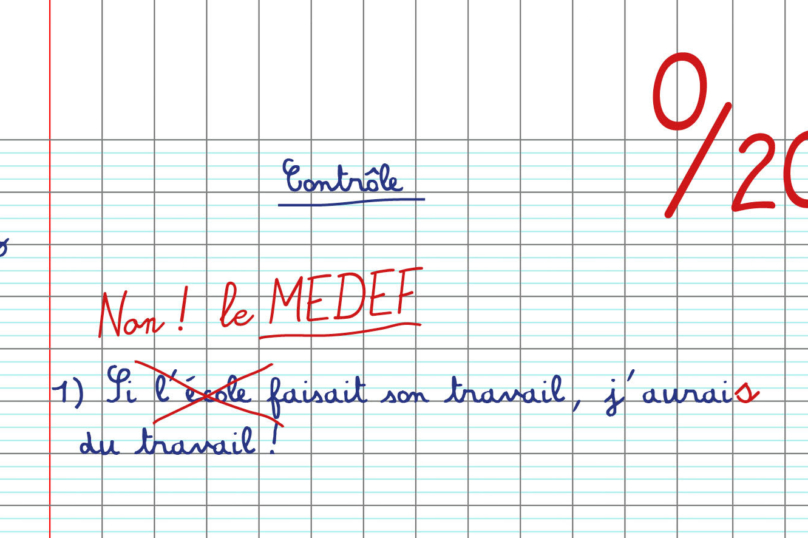 0/20
Contrôle
Non ! le MEDEF
1) Si l'école faisait son travail, j'aurais
du travail !